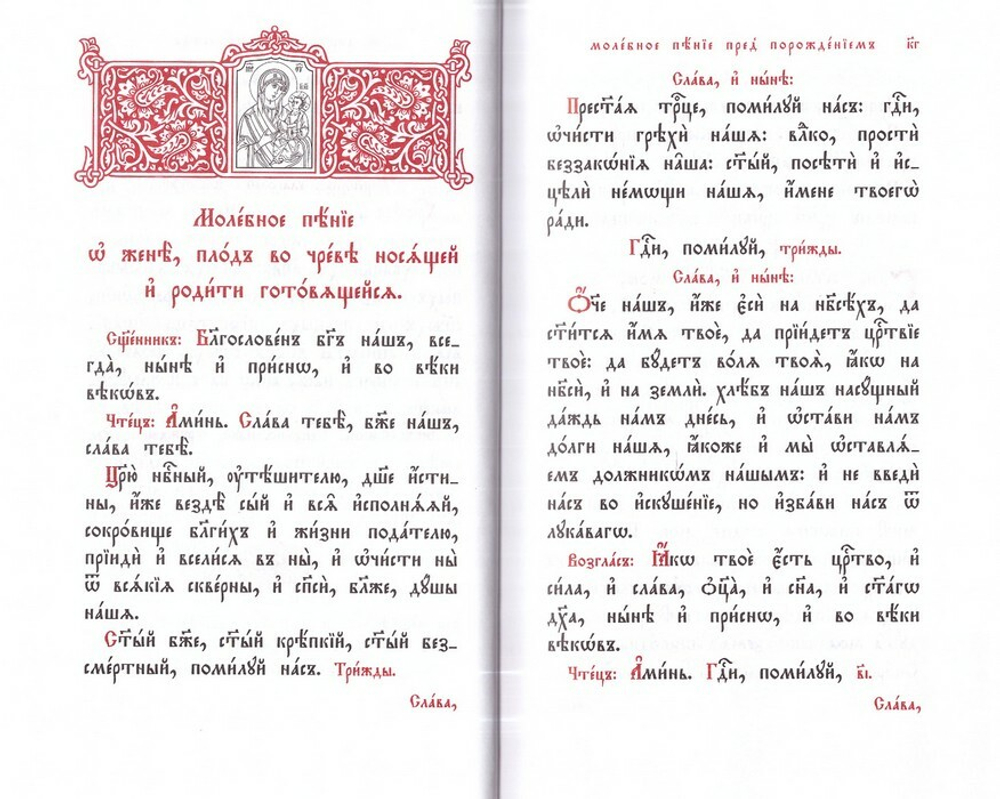 Моле́бное пѣ́нїе
ѡ҆ женѣ̀, пло́дъ во чре́вѣ нося́щей
и҆ роди́ти гото́вящейся.
Сщ҃е́нникъ: Бл҃гослове́нъ бг҃ъ на́шъ, все-
гда̀, ны́нѣ и҆ при́снѡ, и҆ во вѣ́ки
вѣкѡ́въ.
Чте́цъ: А҆ми́нь. Сла́ва тебѣ̀, бж҃е на́шъ,
сла́ва тебѣ̀.
Цр҃ю̀ нбⷭ҇ный, ᲂу҆тѣ́шителю, дш҃е и҆́сти-
ны, и҆́же вездѣ̀ сы́й и҆ всѧ̑ и҆сполнѧ́ѧй,
сокро́вище бл҃ги́хъ и҆ жи́зни пода́телю,
прїидѝ и҆ всели́сѧ въ ны̀, и҆ ѡ҆чи́сти ны̀
ѿ всѧ́кїѧ скве́рны, и҆ сп҃сѝ, бл҃же, дꙋ́шы
на́шѧ.
Ст҃ы́й бж҃е, ст҃ы́й крѣ́пкїй, ст҃ы́й без-
сме́ртный, поми́лꙋй на́съ. Три́жды.
Сла́ва,
моле́бное пѣ́нїе пред порожде́нїемъ к҃г
Сла́ва, и҆ ны́нѣ:
Прест҃а́ѧ трⷪ҇це, поми́лꙋй на́съ: гдⷭ҇и,
ѡ҆чи́сти грѣхѝ на́шѧ: влⷣко, простѝ
беззакѡ́нїѧ на̑ша: ст҃ы́й, посѣтѝ и҆ и҆с-
цѣлѝ не́мѡщи на́шѧ, и҆́мене твоегѡ̀
ра́ди.
Гдⷭ҇и, поми́лꙋй, три́жды.
Сла́ва, и҆ ны́нѣ:
Ѻ҆́ч҃е на́шъ, и҆́же є҆сѝ на нб҃сѣ́хъ, да
ст҃и́тсѧ и҆́мѧ твоѐ, да прїи́детъ црⷭ҇твїе
твоѐ: да бꙋ́детъ во́лѧ твоѧ̀, ꙗ҆́кѡ на
нб҃сѝ, и҆ на землѝ. хлѣ́бъ на́шъ насꙋ́щный
да́ждь на́мъ дне́сь, и҆ ѡ҆ста́ви на́мъ
до́лги на́шѧ, ꙗ҆́коже и҆ мы̀ ѡ҆ставлѧ́-
емъ должникѡ́мъ на́шымъ: и҆ не введѝ
на́съ во и҆скꙋше́нїе, но и҆зба́ви на́съ ѿ
лꙋка́вагѡ.
Возгла́съ: Ꙗ҆́кѡ твоѐ є҆́сть црⷭ҇тво, и҆
си́ла, и҆ сла́ва, ѻ҆ц҃а̀, и҆ сн҃а, и҆ ст҃а́гѡ
дх҃а, ны́нѣ и҆ при́снѡ, и҆ во вѣ́ки
вѣкѡ́въ.
Чте́цъ: А҆ми́нь. Гдⷭ҇и, поми́лꙋй, в҃і.
Сла́ва,